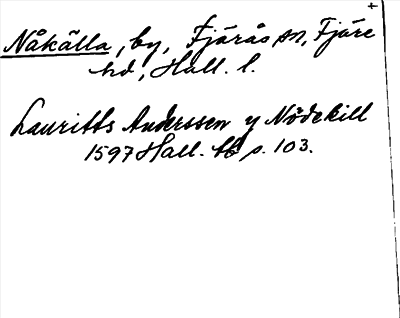 Nåkälla, by, Fjärås sn, Fjäre
hd, Hall. l.
Lauritts Anderssen y Nödekill
1597 Hall. tb p. 103.